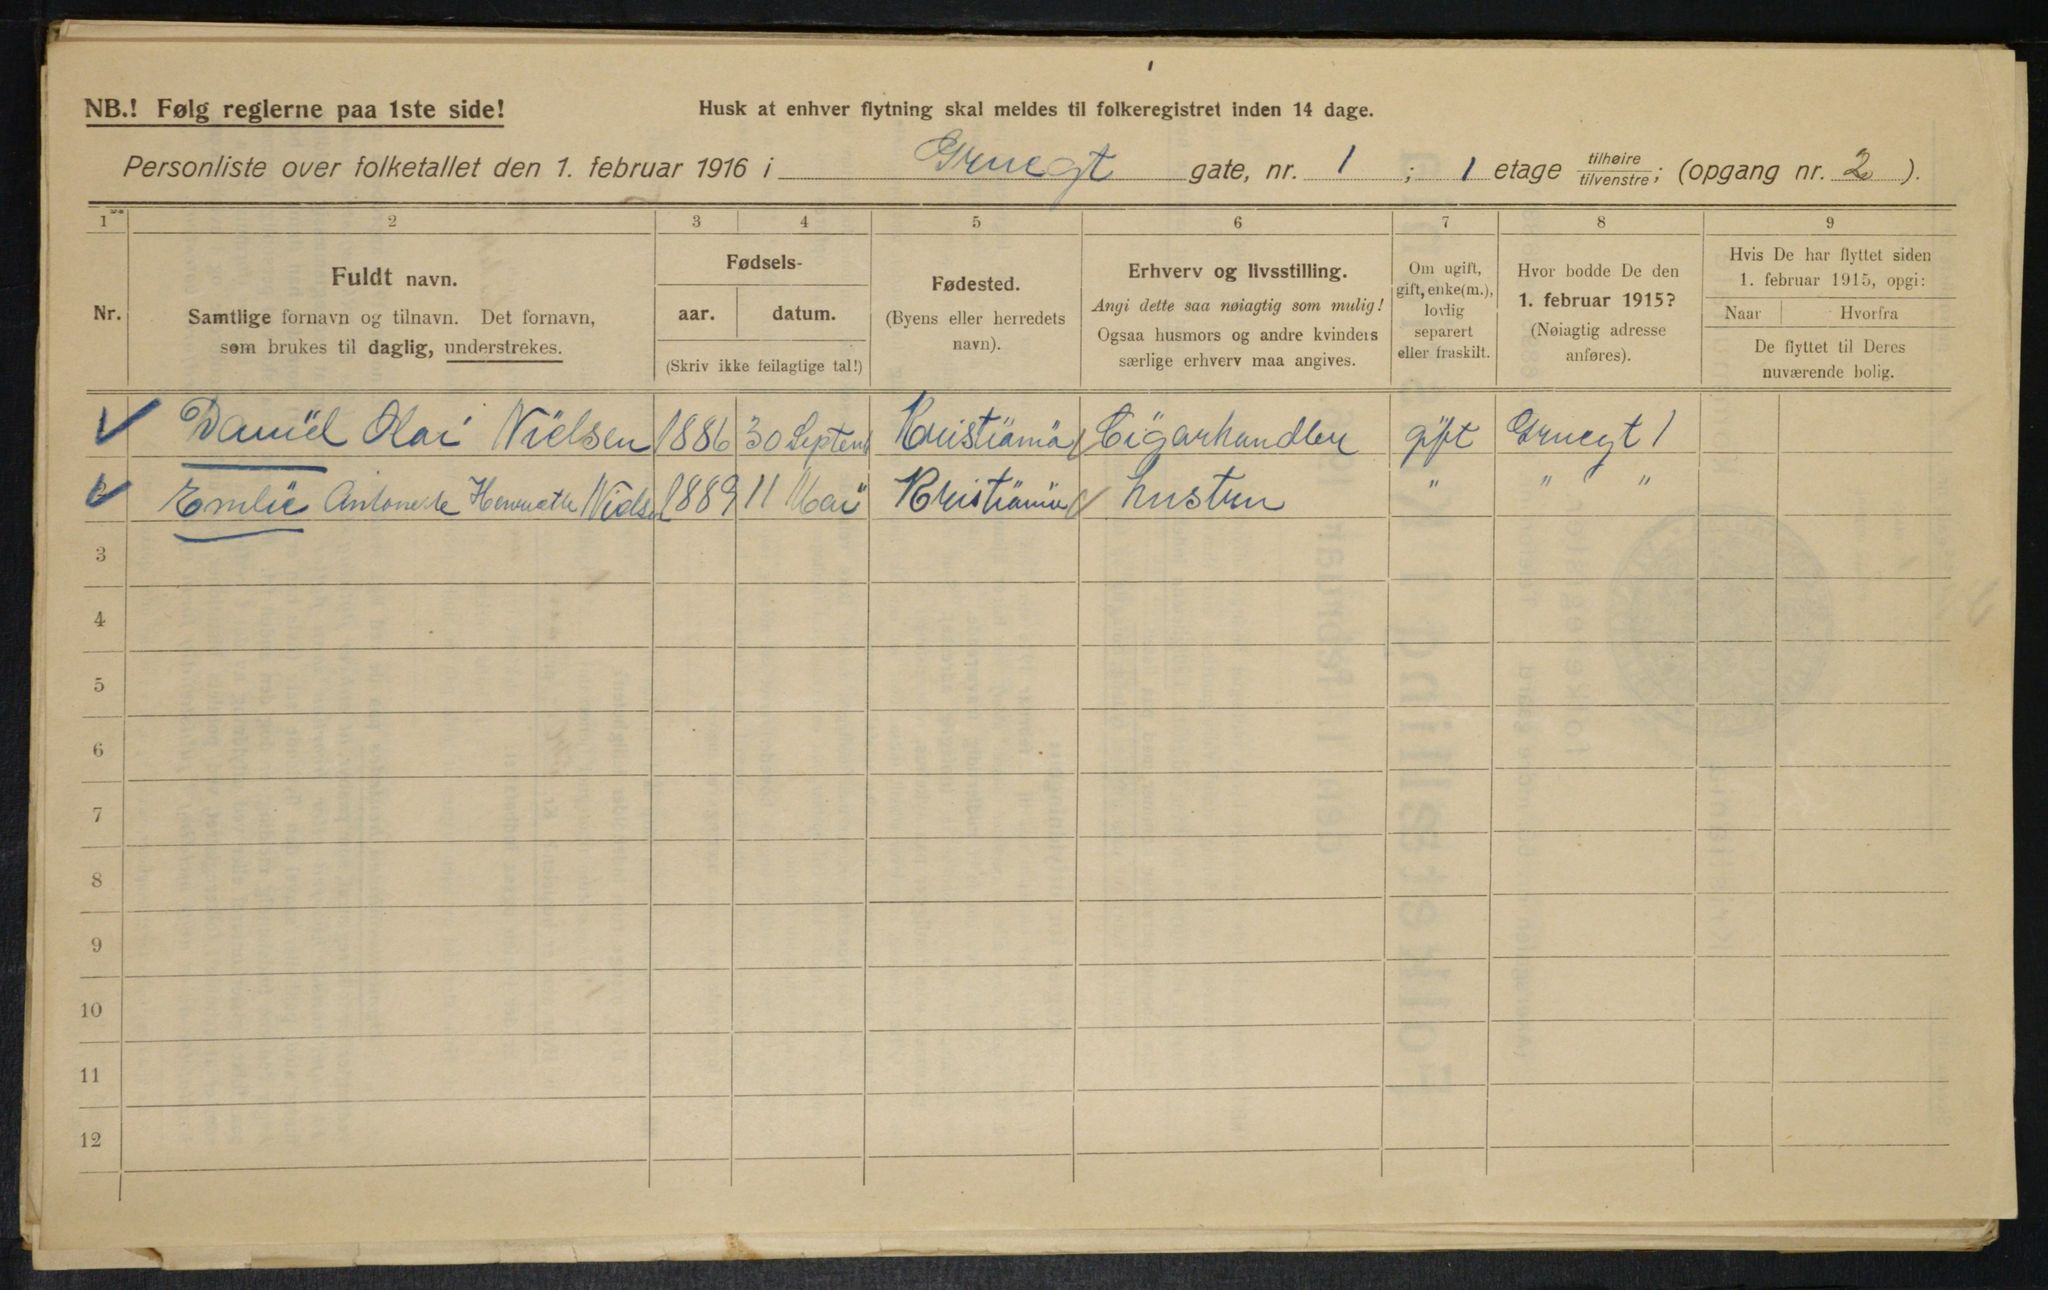 NB.! Følg reglerne paa 1ste side!
Husk at enhver flytning skal meldes til folkeregistret inden 14 dage.
Personliste over folketallet den 1. februar 1916 i Gruegt gate, nr. 1 ; 1 etage tilhøire/tilvenstre; (opgang nr. 2).
1 2 3 4 5 6 7 8 9
Nr.
Fuldt navn.
Samtlige fornavn og tilnavn. Det fornavn,
som brukes til daglig, understrekes.
Fødsels-
aar. datum.
(Skriv ikke feilagtige tal!)
Fødested.
(Byens eller herredets
navn).
Erhverv og livsstilling.
Angi dette saa nøiagtig som mulig!
Ogsaa husmors og andre kvinders
særlige erhverv maa angives.
Om ugift,
gift, enke(m.),
lovlig
separert
eller fraskilt.
Hvor bodde De den
1. februar 1915?
(Nøiagtig adresse
anføres).
Hvis De har flyttet siden
1. februar 1915, opgi:
Naar Hvorfra
De flyttet til Deres
nuværende bolig.
Daniel Olai Nielsen 1886 30 Septem Kristiania Cigarhandler gift Gruegt 1
Emlie Nielsen 1889 11 Mai Kristiania hustru " " "
3
4
5
6
7
8
9
10
11
12